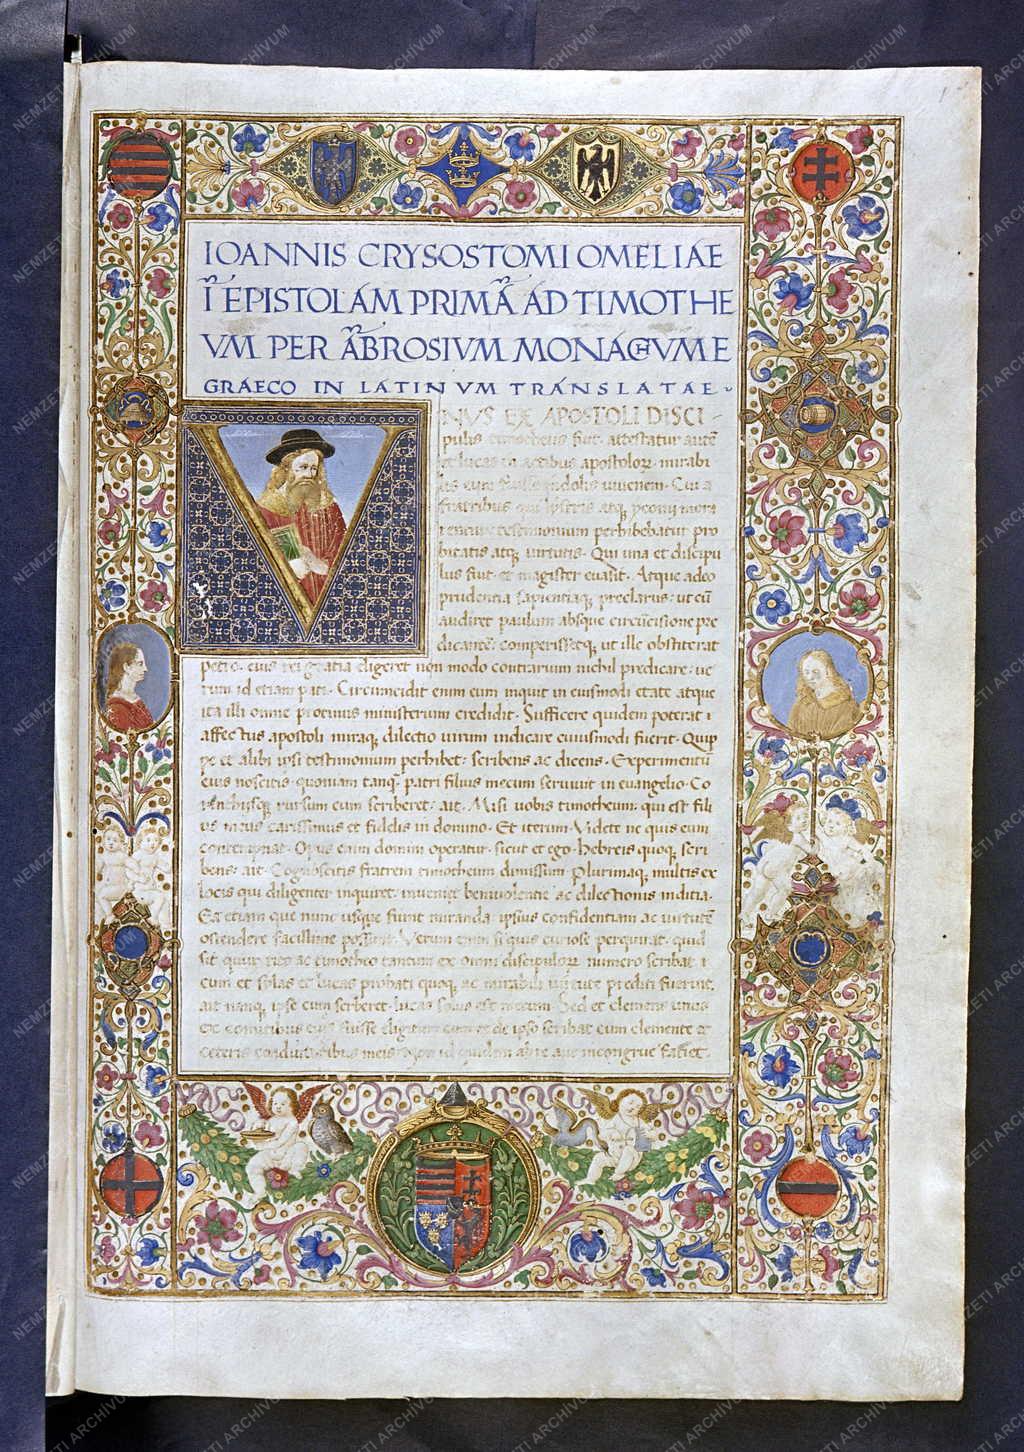 IOANNIS CRYSOSTOMI OMELIAE
Ī EPISTOLAM PRIMĀ AD TIMOTHE
VM PER ĀBROSIVM MONACHVM E
GRAECO IN LATINVM TRANSLATAE
NVS EX APOSTOLI DISCI
pulis timotheus fuit. attestatur autē
et lucas in actibus apostoloꝝ. mirabi
fratribus qui lystris atq yconij mora
rentur testimonium perhibebatur pro
bitatis atq uirtutis. Qui una et discipu
lus fuit. et magister euasit. Atque adeo
prudentia sapientiaq preclarus. ut cū
audiret paulum absque circūcisione pre
dicantē. comperissetq ut ille obstiterat
petro. eius rei gratia eligeret non modo contrarium nichil predicare. ue
rum id etiam pati. Circumcidit enim eum inquit in eiusmodi etate atque
ita illi omne protinus ministerium credidit. Sufficere quidem poterat i
affectus apostoli miraq dilectio uirum indicare cuiusmodi fuerit. Quip
pe et alibi ipsi testimonium perhibet. scribens ac dicens. Experimentū
eius noscitis. quoniam tanq patri filius mecum seruiuit in euangelio. Co
rinthijsq rursum cum scriberet. ait. Misi uobis timotheum. qui est fili
us meus carissimus et fidelis in domino. Et iterum. Videte ne quis eum
contempnat. Opus enim domini operatur. sicut et ego. hebreis quoq scri
bens. ait. Cognoscitis fratrem timotheum dimissum. Plurimaq multis ex
locis qui diligenter inquiret. inueniet beniuolentie ac dilectionis inditia.
Ea etiam que nunc usque fiunt miranda. ipsius confidentiam ac uirtutē
ostendere facillime possunt. Verum enim si quis curiose perquirat. quid
sit quur tito ac timotheo tantum ex omni discipuloꝝ numero scribat. i
cum et sylas et lucas probati quoq ac mirabili uirtute prediti fuerint.
ait nanq ipse cum scriberet. lucas solus est mecum. Sed et clemens unus
ceteris
NEMZETI ARCHÍVUM